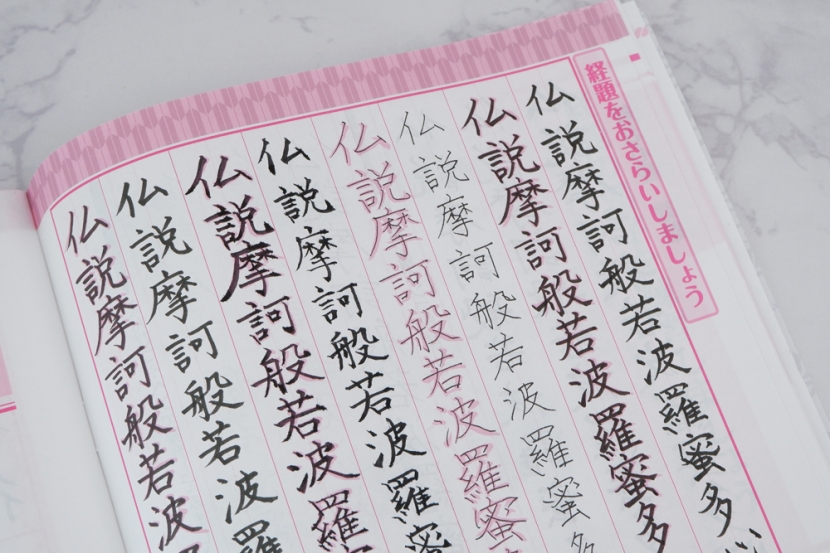 経題をおさらいしましょう
仏説摩訶般若波羅蜜多心
仏説摩訶般若波羅蜜多
仏説摩訶般若波羅蜜多
仏説摩訶般若波羅蜜
仏説摩訶般若波羅蜜
仏説摩訶般若波羅
仏説摩訶般若波羅
仏説摩訶般若波